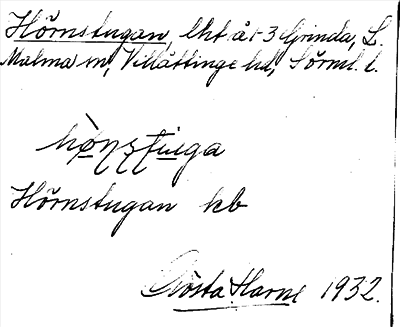 Hörnstugan, lht å 1-3 Grinda, L.
Malma sn, Villåttinge hd, Sörml. l.
Hörnstugan kb
Gösta Harne 1932.